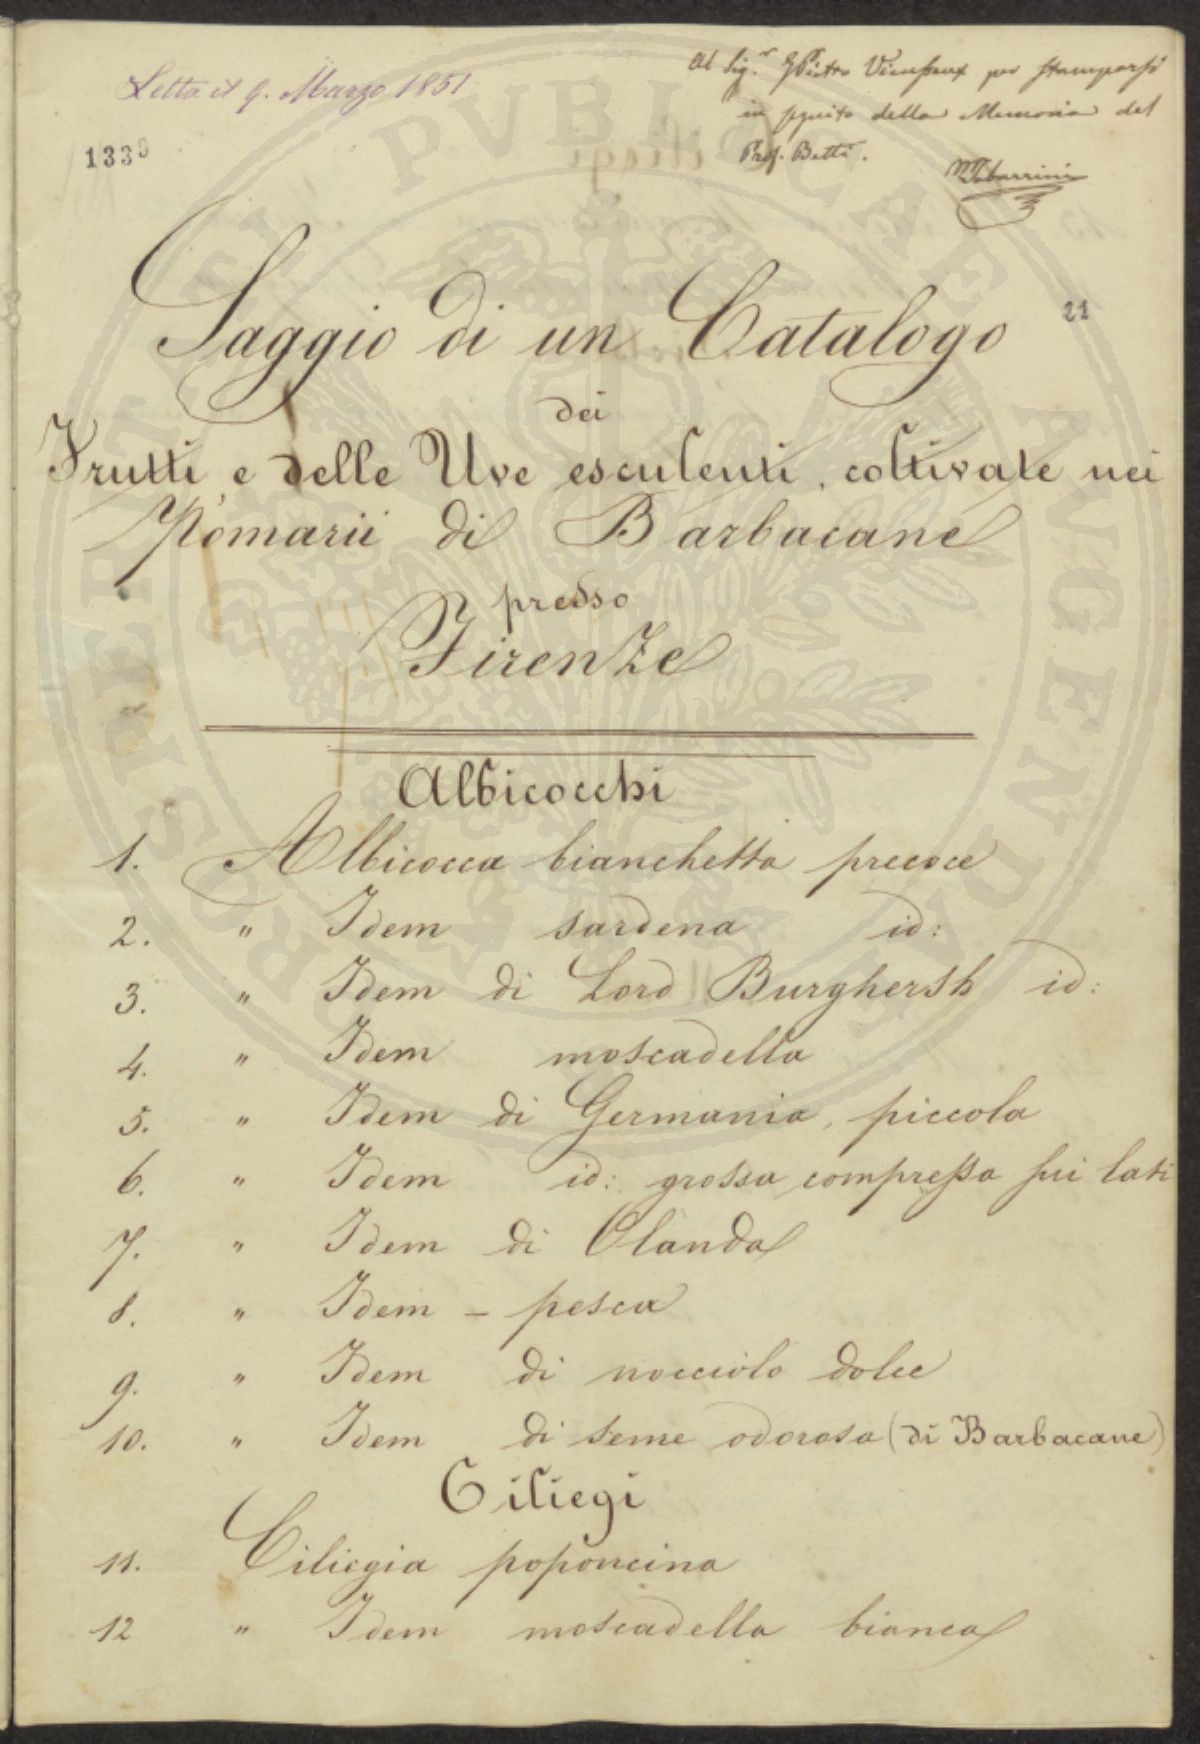 Letta il 9. Marzo 1851
Al Sig.r GPietro Vieusseux per stamparsi
in seguito della Memoria del
Prof. Betti.
MTabarrini
1339
21
Saggio di un Catalogo
dei
Frutti e delle Uve esculenti, coltivate nei
Pomarii di Barbacane
presso
Firenze
Albicocchi
1. Albicocca bianchetta precoce
2. " Idem sardena id:
3. " Idem di Lord Burghersh id:
4. " Idem moscadella
5. " Idem di Germania, piccola
6. " Idem id: grossa compressa sui lati
7. " Idem di Olanda
8. " Idem - pesca
9. " Idem di nocciolo dolce
10. " Idem di seme odorosa (di Barbacane)
Ciliegi
11. Ciliegia poponcina
12 " Idem moscadella bianca
PROSPERITATI PVBLICAE AVGENDAE